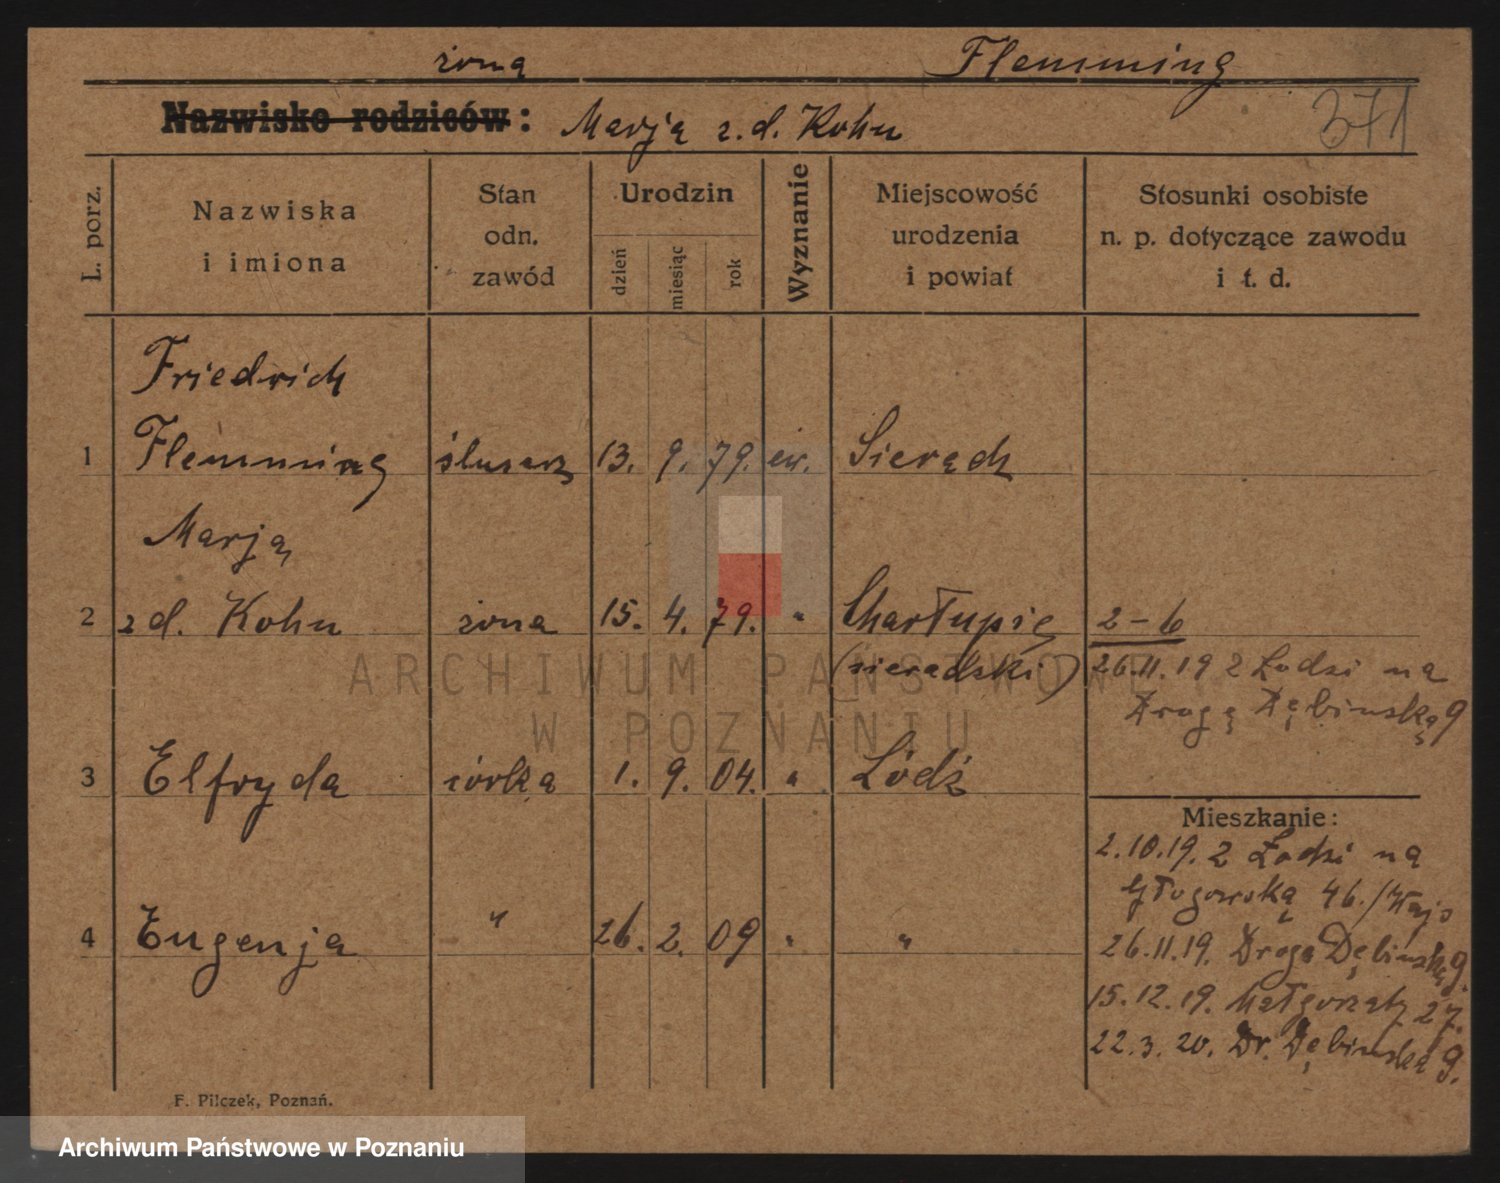 żona Flemming
Nazwisko rodziców: Marją z.d. Kohn
371
L. porz.
Nazwiska
i imiona
Stan
odn.
zawód
Urodzin
dzień
miesiąc
rok
Wyznanie
Miejscowość
urodzenia
i powiat
Stosunki osobiste
n. p. dotyczące zawodu
i t. d.
Friedrich
1 Flemming ślusarz 13. 9. 79. ew. Sieradz
Marją
2 z d. Kohn żona 15. 4. 79. " Charłupię 2-6
(sieradzki) 26.11.19 z Łodzi na
Drogę Dębinską 9
3 Elfryda córka 1. 9. 04. " Łódź
Mieszkanie:
2.10.19. z Łodzi na
Głogowską 46.
4 Eugenja " 26. 2. 09 " " 26.11.19. Droga Dębinską 9.
15.12.19. Małgorzaty 27.
22.3.20. Dr. Dębinska 9.
F. Pilczek, Poznań.
ARCHIWUM PAŃSTWOWE
W POZNANIU
Archiwum Państwowe w Poznaniu